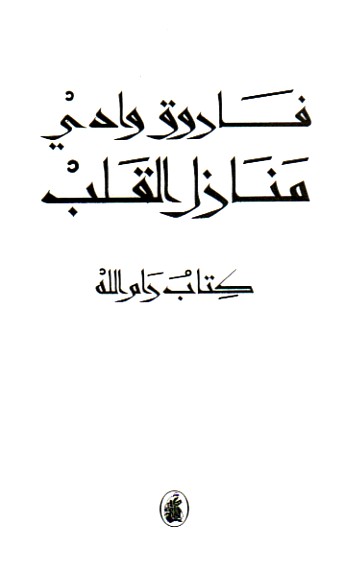 فَاروق وادي
مَنَازل القَلبْ
كِتابُ رَام اللهْ